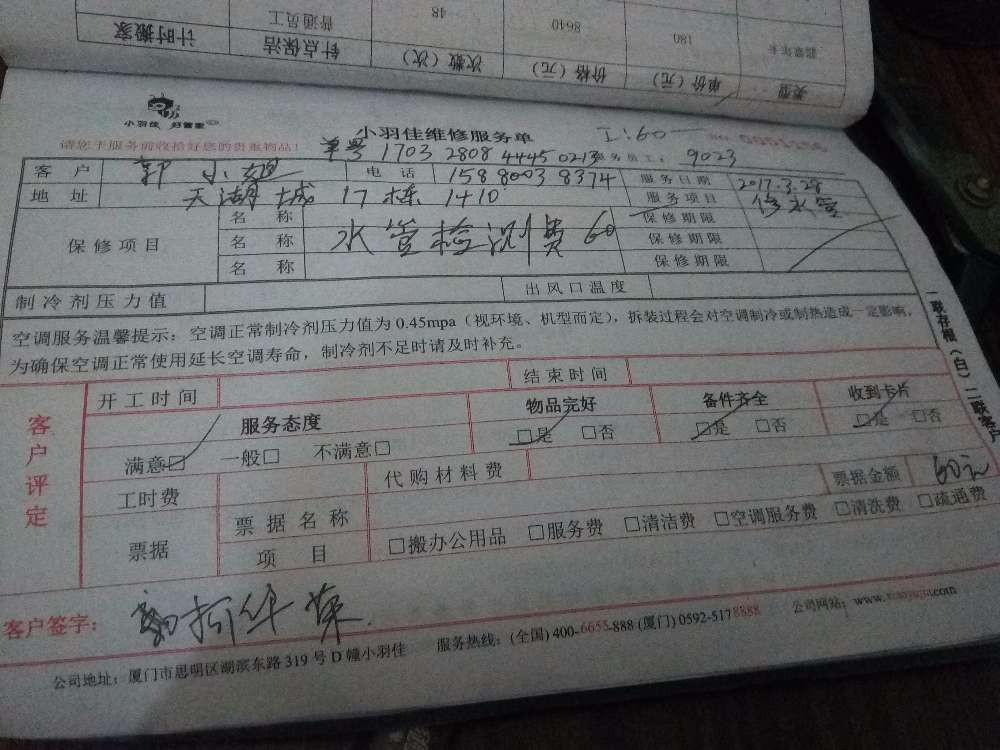 类型 单价（元） 价格（元） 次数（次） 针点保洁 计时搬家
翡翠年卡 180 8640 48 普通员工
小羽佳 好管家
小羽佳维修服务单 工:60
请您于服务前收拾好您的贵重物品! 单号 1703 2808 4445 0213 服务员工: 9023
客户 郭小姐 电话 158 8003 8374 服务日期 2017.3.28
地址 天湖城 17栋 1410 服务项目 修水管
保修项目 名称 水管检测费 60 保修期限
名称 保修期限
名称 保修期限
制冷剂压力值 出风口温度
空调服务温馨提示：空调正常制冷剂压力值为 0.45mpa（视环境、机型而定），拆装过程会对空调制冷或制热造成一定影响，
为确保空调正常使用延长空调寿命，制冷剂不足时请及时补充。
一联存根（白）二联客户
客户评定
开工时间 结束时间
服务态度 物品完好 备件齐全 收到卡片
满意□ 一般□ 不满意□ □是 □否 □是 □否 □是 □否
工时费 代购材料费 票据金额 60元
票据 票据名称
项目 □搬办公用品 □服务费 □清洁费 □空调服务费 □清洗费 □疏通费
客户签字:
公司地址：厦门市思明区湖滨东路 319 号 D 幢小羽佳 服务热线：(全国) 400-6655-888 (厦门) 0592-5178888 公司网站：www.xiaoyujia.com